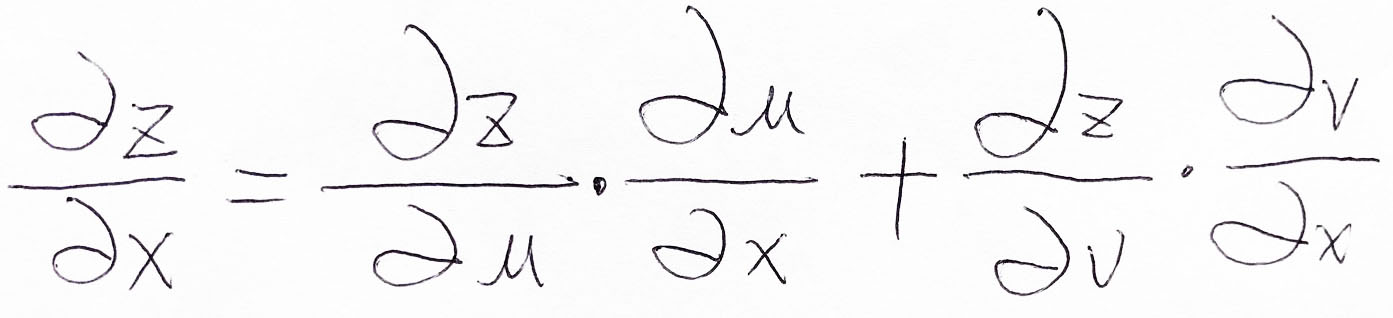 ∂z/∂x = ∂z/∂u · ∂u/∂x + ∂z/∂v · ∂v/∂x